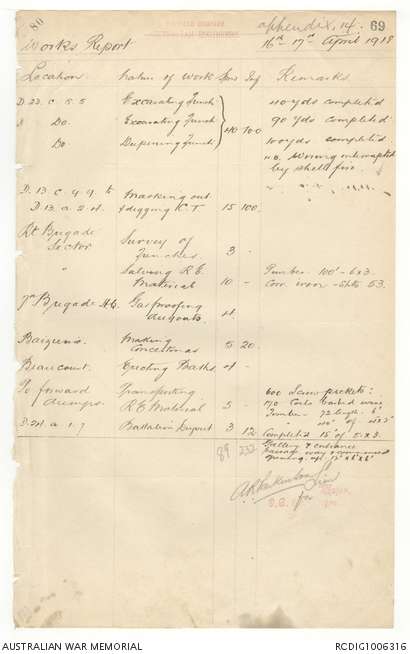 80
appendix 14. 69
Works Report 16th 17th April 1918
Location Nature of Work Sprs Inf Remarks
D. 23. c. 5. 5 Excavating Trench 110 yds completed
Do. Excavating Trench 40 100 90 yds completed
Do. Deepening Trench 100 yds completed
N.B. Working interrupted
by shell fire.
D. 13. c. 9. 9. to Marking out
D 13. a. 2. 4. & digging C.T 15 100.
Rt Brigade Survey of
Sector Trenches 3 -
" Salving R.E Timber 100' - 6x3.
Material 10 - Corr. iron - Shts 53.
7th Brigade H.Q. Gas proofing
dugouts. 4.
Baizieux. Making
Concertinas 5 20.
Beaucourt. Erecting Baths 4 -
To forward Transporting 600 Screw pickets:
dumps. R.E Material 5 170 Coils barbed wire
Timber 72 lengths 6'
Battalion Dugout 3 12 Completed 15' of 5 x 3.
89 232
for
AUSTRALIAN WAR MEMORIAL RCDIG1006316